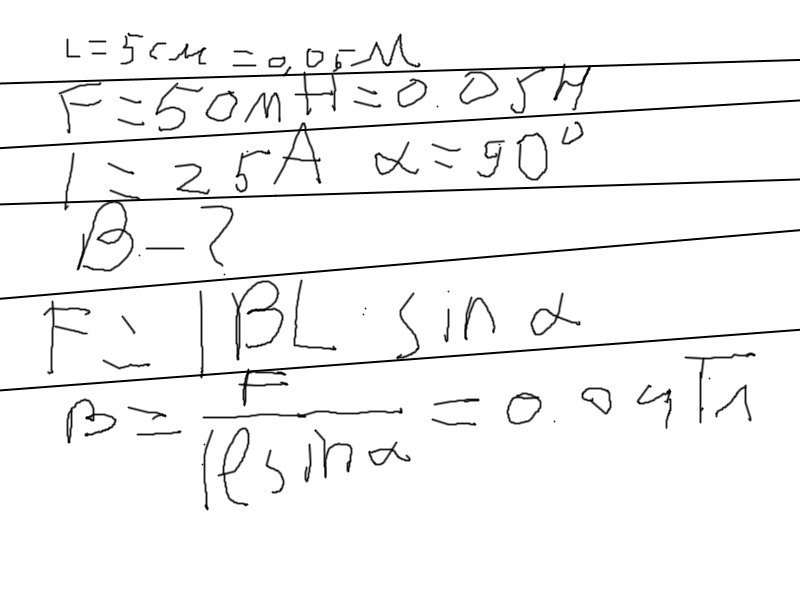 L = 5 см = 0,05 М
F = 50 мН = 0.05 Н
I = 25 А α = 90°
B - ?
F = IBL · sin α
B = F / Iℓ sin α = 0.04 Тл